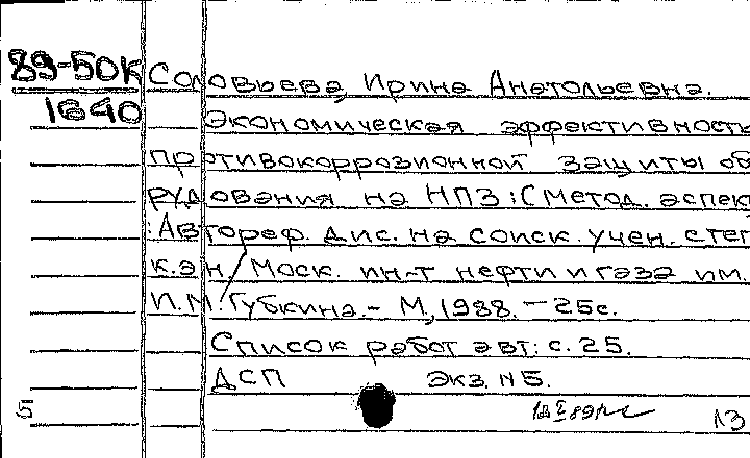 89-50К Соловьева, Ирина Анатольевна.
1640
Экономическая эффективность
противокоррозионной защиты об
рудования на НПЗ: (Метод. аспек
: Автореф. дис. на соиск. учен. степ
к.эн/Моск. ин-т нефти и газа им.
И.М. Губкина. - М., 1988. - 25с.
Список работ авт: с. 25.
ДСП Экз. №5.
5 13